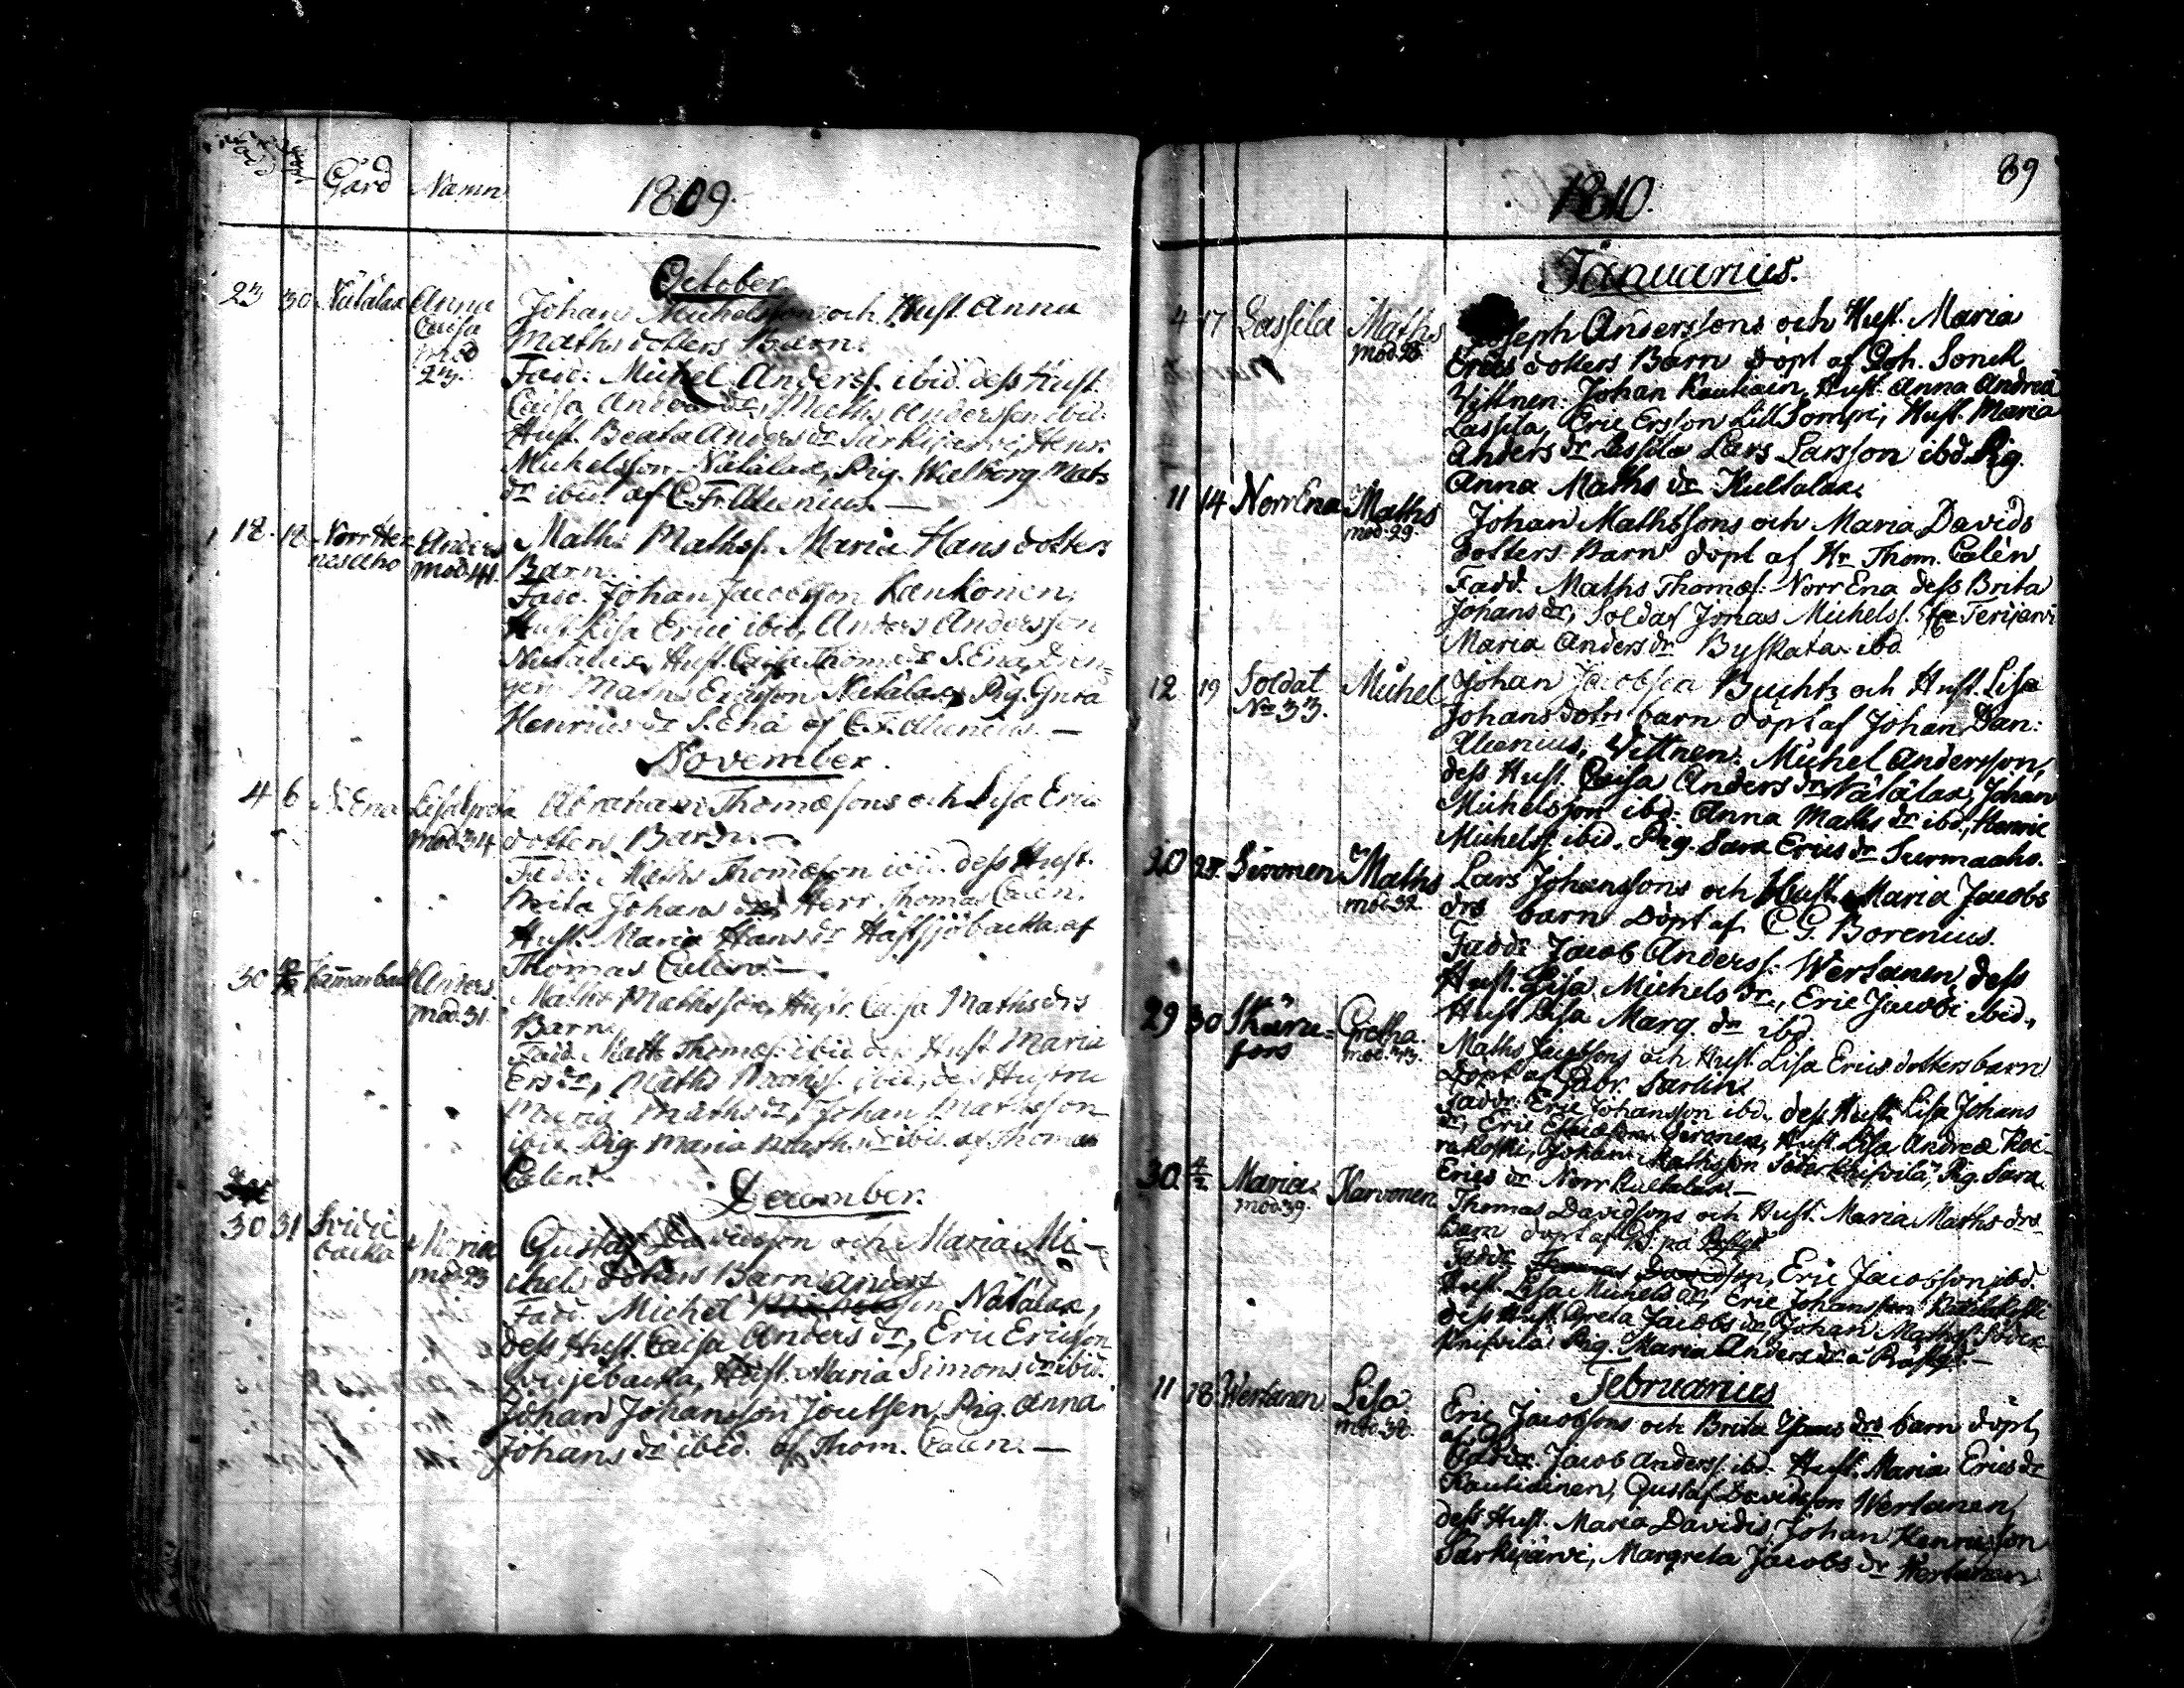 Gård Namn 1809.
October
23 30 Nälalax Anna Johan Michelsson och Hust. Anna
Caisa Maths dotters Barn.
mod 23. Fadd: Michel Anderss. ibid. dess Hust.
Caisa Anders dr, Maths Andersson ibid.
Hust. Beata Anders dr Särkijärvi, Henr.
Michelsson Nälalax, Pig. Walborg Mats
dr ibid. af C. Fr. Alcenius. —
18. Norr Anders Maths Mathss. Maria Hans dotters
mod 41. Barn.
Fadd. Johan Jacobsson Kankonen,
Hust. Lisa Erici ibid, Anders Andersson
Nälalax, Hust. Caisa Thomæ dr S. Ena, Drän-
gen Maths Ericsson Nälalax, Pig. Greta
Henrics dr S. Ena af C. F. Alcenius. —
November.
4 6 N. Ena Lisa Greta Abraham Thomæsons och Lisa Erics
mod. 34 dotters Barn. —
Fadd. Maths Thomæson ibid. dess Hust.
Brita Johans dr, Herr Thomas Calen.
Hust. Maria Hans dr Hästsjöbacka af
Thomas Calen. —
30 Anders Maths Mathsson, Hustr. Caisa Maths drs
mod. 31. Barn.
Fadd. Matts Thomæs. ibid. des Hust Maria
Ers dr, Maths Mathss. ibid, des Hustru
Maria Maths dr, Johan Mathsson
ibid. Pig. Maria Maths dr ibid. af Thomas
Calen.
December.
30 31 Svidie Maria Gustaf Davidsson och Maria Mi-
backa mod. 23 chels dotters Barn. Anders
Fadd. Michel Nälalax,
dess Hust. Caisa Anders dr, Eric Ericsson
Svidjebacka, Hust. Maria Simons dr ibid.
Johan Johansson Joutsen, Pig. Anna
Johans dr ibid. af Thom. Calen. —
89
1810.
Januarius.
4 17 Lassila Maths Joseph Anderssons och Hust. Maria
mod. 28. Erics dotters Barn döpt af Joh. Sonck
Vittnen: Johan Rauhain, Hust. Anna Andreæ
Lassila, Eric Ersson LillSompi, Hust. Maria
Anders dr Lassila Lars Larsson ibd. Pig.
Anna Maths dr Kultalax.
11 14 Norr Ena Maths Johan Mathssons och Maria Davids
mod. 29. dotters Barn döpt af Hr Thom. Calén
Fadd. Maths Thomæs. Norr Ena dess Brita
Johans dr, Soldat Jonas Michelss. Terijärvi
Maria Anders dr Byskata ibd
12 19 Soldat Michel Johan Jacobsson Buchtz och Hust. Lisa
No 33. Johans dotrs barn döpt af Johan Dan:
Alcenius, Vittnen: Michel Andersson,
dess Hust. Caisa Anders dr Nälalax, Johan
Michelsson ibd. Anna Maths dr ibd, Henric
Michelss. ibid. Pig. Sara Erics dr Surmaaho.
20 28 Simonen Maths Lars Johanssons och Hust. Maria Jacobs
mod. 32. drs barn döpt af C. G. Borenius.
Faddr Jacob Anderss. Wertanen, dess
Hust. Lisa Michels dr, Eric Jacobi ibid.,
Hust Lisa Marg. dr ibd
29 30 Skånu- Gretha Maths Jacobssons och Hust. Lisa Erics dotters barn
fors mod. 43. döpt af Gabr. Sarlin.
Faddr. Eric Johansson ibd. dess Hust. Lisa Johans
dr, Eric Hust Lisa Andreæ Koi-
rakoski, Johan Mathsson Söderkneifvilä, Pig. Sara
Erics dr Norr Kultalax. —
30 4/2 Maria Karvonen Thomas Davidssons och Hust. Maria Maths drs
mod. 39. barn döpt af på Prästgd.
Faddr Thomas Davidsson, Eric Jacobsson, ibd.
Hust. Lisa Michels dr, Eric Johansson
dess Hust. Greta Jacobs dr Johan Mathss. Söder
kneifvilä Pig. Maria Anders dr å Prästgd. —
Februarius
11 18 Wertanen Lisa Eric Jacobssons och Brita Hans drs barn döpt
mod. 38. af
Faddr. Jacob Anderss. ibd. Hust. Maria Erics dr
Rautiainen, Gustaf Davidsson Wertanen,
dess Hust. Maria Davidis, Johan Henricsson
Särkijärvi, Margreta Jacobs dr Wertanen